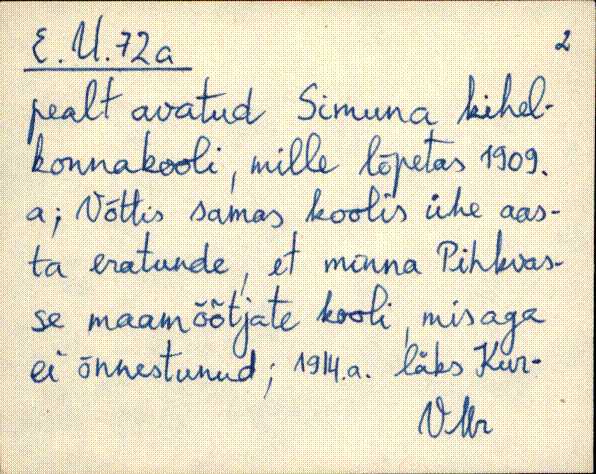 E.U.72a
2
pealt avatud Simuna kihel-
konnakooli, mille lõpetas 1909.
a; Võttis samas koolis ühe aas-
ta eratunde, et minna Pihkvas-
se maamõõtjate kooli, misaga
ei õnnestunud; 1914.a. läks Kur-